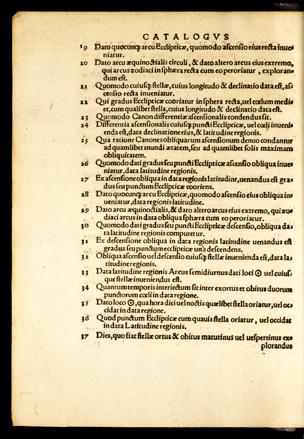 CATALOGVS
19 Dato quocunq; arcu Eclipticæ, quomodo ascensio eius recta inue-
niatur.
20 Dato arcu æquinoctialis circuli, & dato altero arcus eius extremo,
qui arcus zodiaci in sphæra recta cum eo peroriatur, exploran-
dum est.
21 Quomodo cuiusq; stellæ, cuius longitudo & declinatio data est, as-
censio recta inueniatur.
22 Qui gradus Eclipticæ cooriatur in sphera recta, uel cœlum mediet
et, cum qualibet stella, cuius longitudo & declinatio data est.
23 Quomodo Canon differentiæ ascensionalis condendus sit.
24 Differentia ascensionalis cuiusq; puncti Eclipticæ, uel stellæ inueni-
enda est, data declinatione eius, & latitudine regionis.
25 Qua ratione Canones obliquarum ascensionum denuo condantur
ad quamlibet mundi ætatem, seu ad quamlibet solis maximam
obliquitatem.
26 Quomodo dati gradus seu puncti Eclipticæ ascensio obliqua inue-
niatur, data latitudine regionis.
27 Ex ascensione obliqua in data regionis latitudine, uenandus est gra-
dus seu punctum Eclipticæ cooriens.
28 Dato quocunq; arcu Eclipticæ, quomodo ascensio eius obliqua in-
ueniatur, data regionis latitudine.
29 Dato arcu æquinoctialis, & dato altero arcus eius extremo, qui zo-
diaci arcus in data obliqua sphæra cum eo peroriatur.
30 Quomodo dati gradus seu puncti Eclipticæ descensio, obliqua da-
ta latitudine regionis computetur.
31 Ex descensione obliqua in data regionis latitudine uenandus est
gradus seu punctum eclipticæ unà descendens.
32 Obliqua ascensio uel descensio cuiusq; stellæ inuenienda est, data la-
titudine regionis.
33 Data latitudine regionis Arcus semidiurnus dati loci ☉ uel cuius-
que stellæ inueniendus est.
34 Quantum temporis interiectum sit inter exortus et obitus duorum
punctorum cœli in data regione.
35 Dato loco ☉, qua hora dici uel noctis quælibet stella oriatur, uel oc-
cidat in data regione.
36 Quod punctum Eclipticæ cum quauis stella oriatur, uel occidat
in data Latitudine regionis.
37 Dies, quo fiat stellæ ortus & obitus matutinus uel uespertinus ex-
plorandus